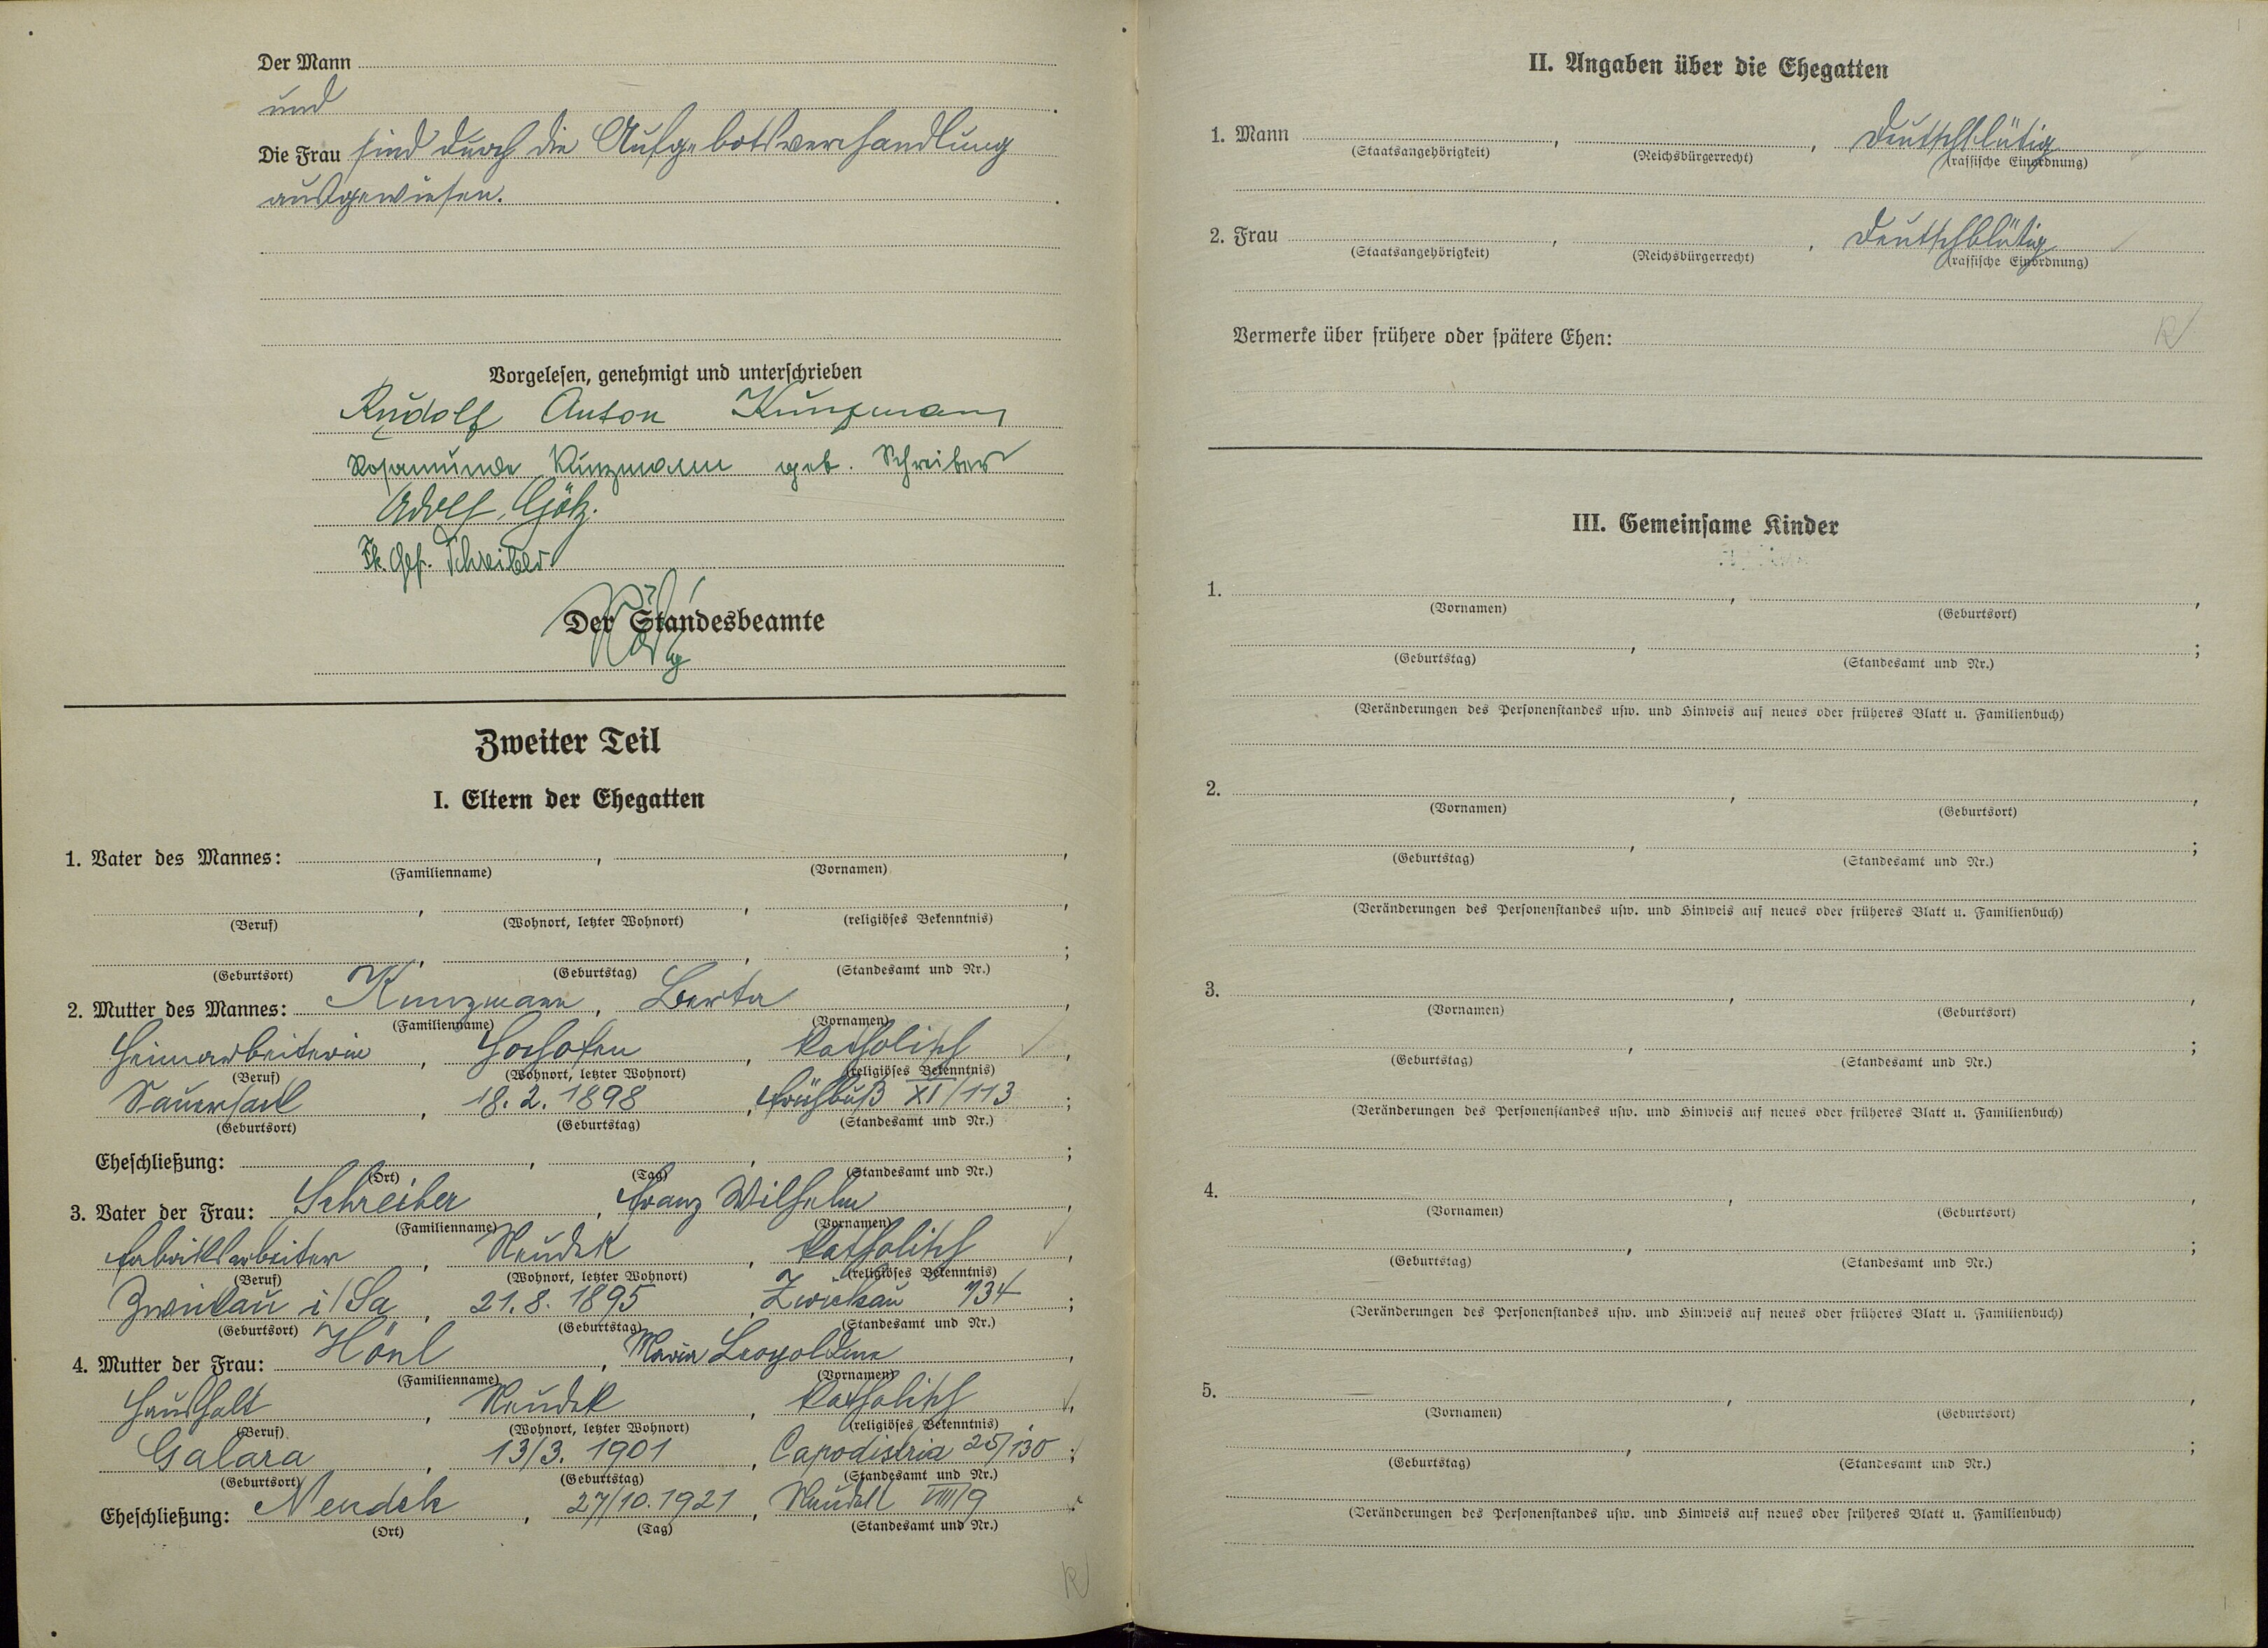 Der Mann
und
Die Frau sind durch die Aufgebotsverhandlung
ausgewiesen.
Vorgelesen, genehmigt und unterschrieben
Rudolf Anton Kunzmann
Rosamunde Kunzmann geb. Schreiber
Adolf Götz.
Schreiber
Der Standesbeamte
Zweiter Teil
I. Eltern der Ehegatten
1. Vater des Mannes: , ,
(Familienname) (Vornamen)
, , ,
(Beruf) (Wohnort, letzter Wohnort) (religiöses Bekenntnis)
, , ;
(Geburtsort) (Geburtstag) (Standesamt und Nr.)
2. Mutter des Mannes: Kunzmann, Berta ,
(Familienname) (Vornamen)
Heimarbeiterin , Hochofen , katholisch ,
(Beruf) (Wohnort, letzter Wohnort) (religiöses Bekenntnis)
Sauersack , 18. 2. 1898 , Frühbuß XI/113 ;
(Geburtsort) (Geburtstag) (Standesamt und Nr.)
Eheschließung: , , ;
(Ort) (Tag) (Standesamt und Nr.)
3. Vater der Frau: Schreiber , Franz Wilhelm ,
(Familienname) (Vornamen)
Fabriksarbeiter , Neudek , katholisch ,
(Beruf) (Wohnort, letzter Wohnort) (religiöses Bekenntnis)
Zwickau i/Sa , 21. 8. 1895 , Zwickau 734 ;
(Geburtsort) (Geburtstag) (Standesamt und Nr.)
4. Mutter der Frau: Hönl , Maria Leopoldine ,
(Familienname) (Vornamen)
Haushalt , Neudek , katholisch ,
(Beruf) (Wohnort, letzter Wohnort) (religiöses Bekenntnis)
Galara , 13/3. 1901 , Capodistria 25/130 ;
(Geburtsort) (Geburtstag) (Standesamt und Nr.)
Eheschließung: Neudek , 27/10. 1921 , Neudek VIII/9 .
(Ort) (Tag) (Standesamt und Nr.)
II. Angaben über die Ehegatten
1. Mann , , Deutschblütig
(Staatsangehörigkeit) (Reichsbürgerrecht) (rassische Einordnung)
2. Frau , , Deutschblütig
(Staatsangehörigkeit) (Reichsbürgerrecht) (rassische Einordnung)
Vermerke über frühere oder spätere Ehen:
III. Gemeinsame Kinder
1. , ,
(Vornamen) (Geburtsort)
, ;
(Geburtstag) (Standesamt und Nr.)
(Veränderungen des Personenstandes usw. und Hinweis auf neues oder früheres Blatt u. Familienbuch)
2. , ,
(Vornamen) (Geburtsort)
, ;
(Geburtstag) (Standesamt und Nr.)
(Veränderungen des Personenstandes usw. und Hinweis auf neues oder früheres Blatt u. Familienbuch)
3. , ,
(Vornamen) (Geburtsort)
, ;
(Geburtstag) (Standesamt und Nr.)
(Veränderungen des Personenstandes usw. und Hinweis auf neues oder früheres Blatt u. Familienbuch)
4. , ,
(Vornamen) (Geburtsort)
, ;
(Geburtstag) (Standesamt und Nr.)
(Veränderungen des Personenstandes usw. und Hinweis auf neues oder früheres Blatt u. Familienbuch)
5. , ,
(Vornamen) (Geburtsort)
, ;
(Geburtstag) (Standesamt und Nr.)
(Veränderungen des Personenstandes usw. und Hinweis auf neues oder früheres Blatt u. Familienbuch)